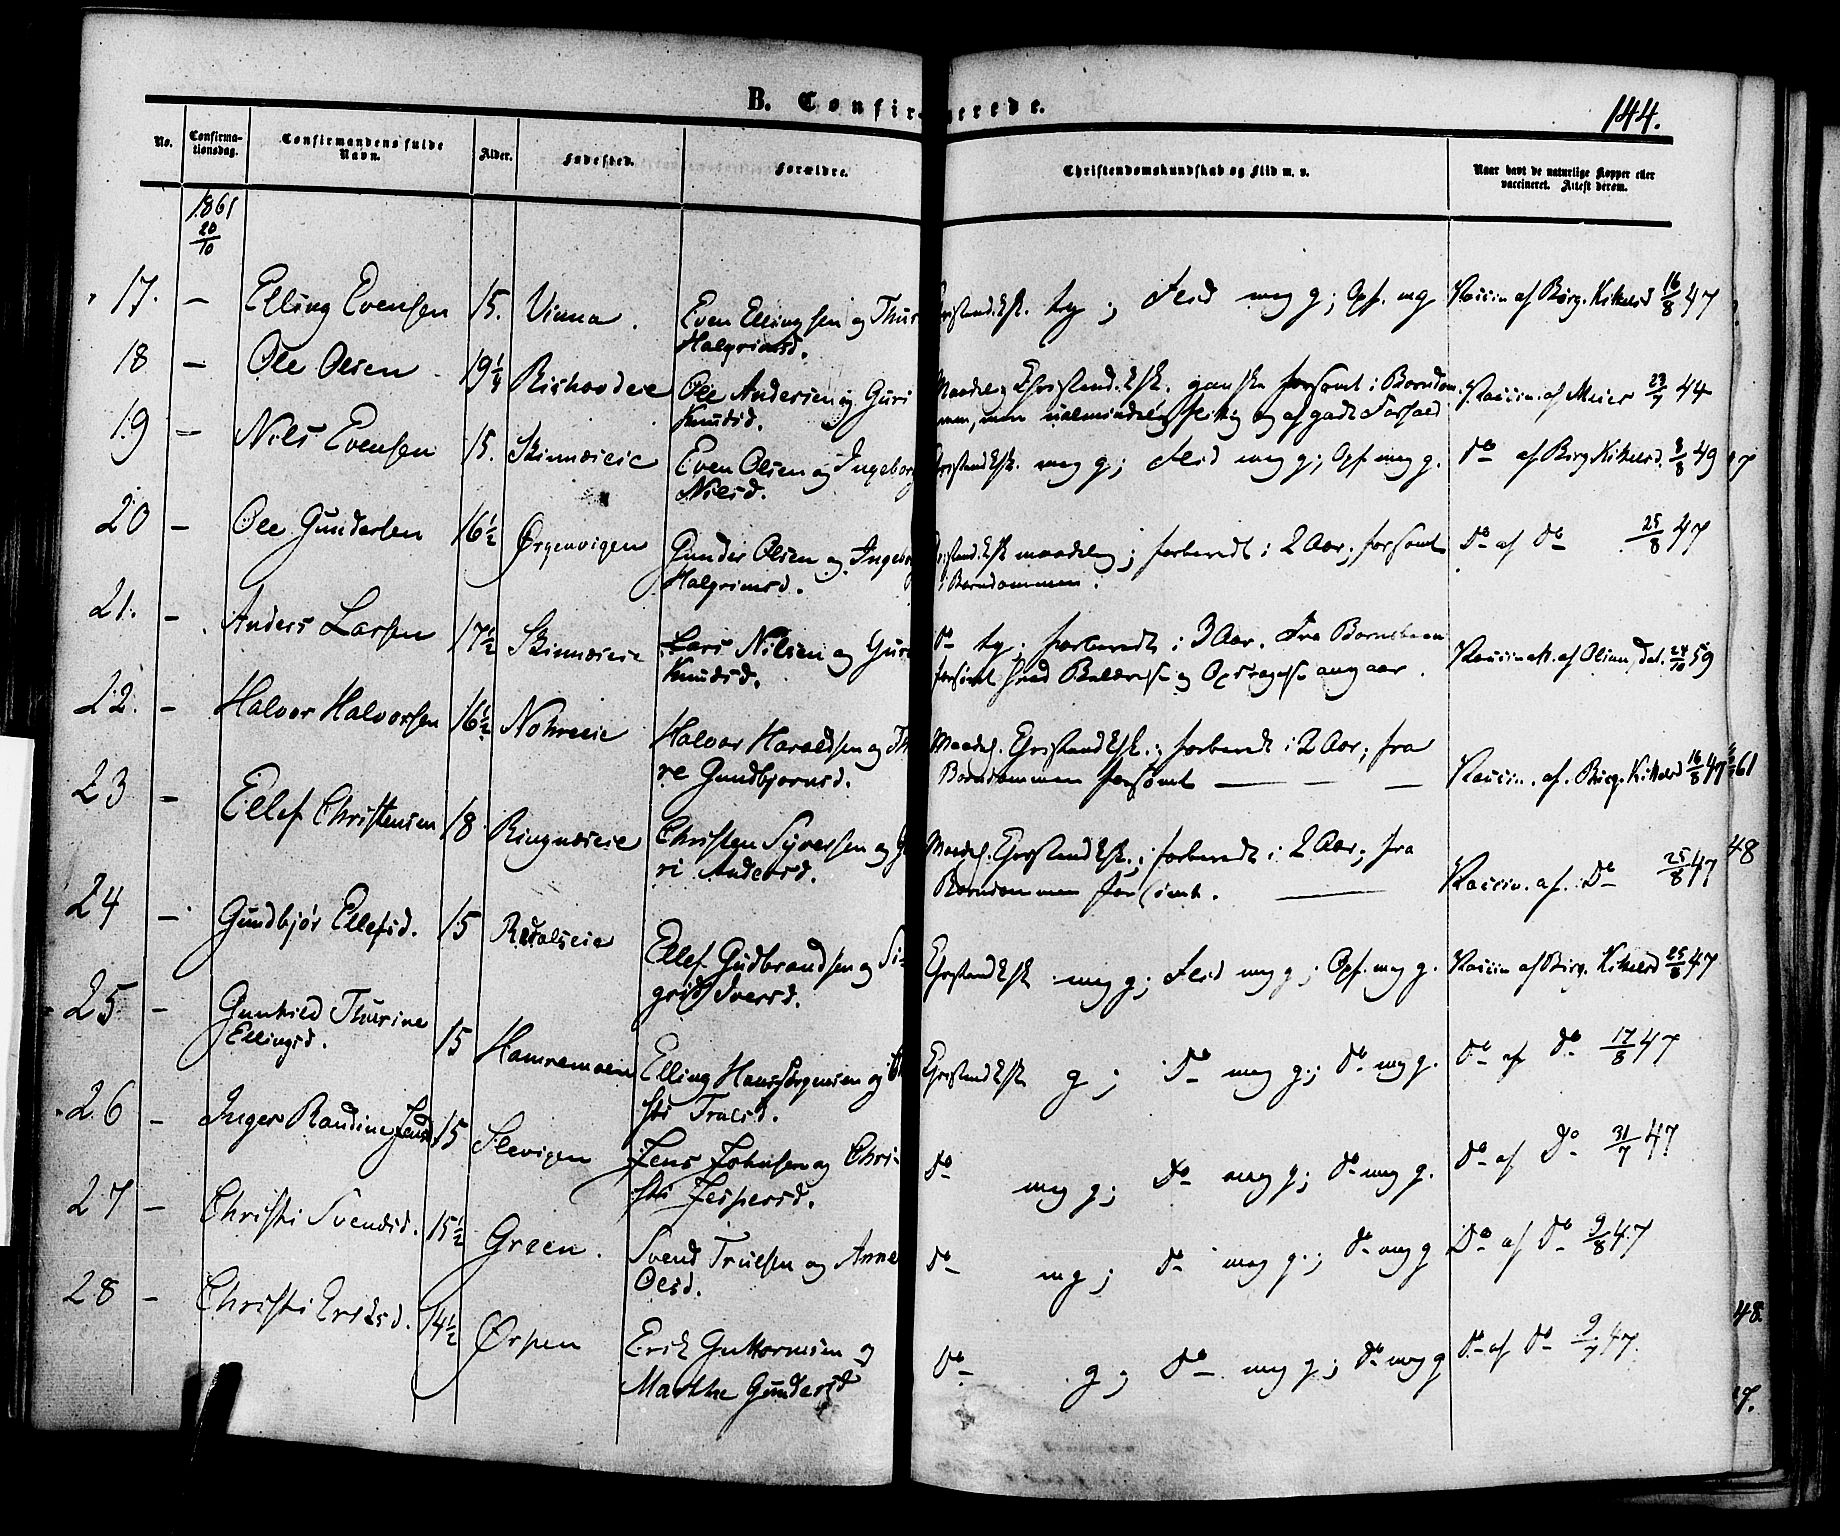 B. Confirmerede.
144.
No. Confirmationsdag. Confirmandens fulde Navn. Alder. Fødested. Forældre. Christendomskundskab og Flid m. v. Naar havt de naturlige Kopper eller vaccineret. Attest derom.
1861
20/10
17. — Elling Evensen 15. Vinna. Even Ellingsen og Thur Halgrimsd. tg; Flid meg g; Opf. mg af Birg. Kittelsd 16/8 47
18 — Ole Olsen 19¼ Ole Andersen og Guri Knudsd. Maadel. Christend.ksk. ganske forsømt i Barndom men, men ualmindelig flittig og af godt Forhold Vaccin. af Meier 23/7 44
19 — Nils Evensen 15. Skinnæseie Even Olsen og Ingeborg Nilsd. meg g; Flid meg g; Opf. meg g. do af Birg Kittelsd. 3/8 49
20 — Ole Gundersen 16½ Ørgenvigen Gunder Olsen og Ingeborg Halgrimsd. maadelig; forberedt i 2 Aar; forsømt i Barndommen. do af do 25/8 47
21. — Anders Larsen 17½ Skinnæseie Lars Nilsen og Guri Knudsd. do tg; forberedt i 3 Aar. Fra Barnsbeen forsømt hvad Belærelse og Opdragelse angaar. 24/10 59
22. — Halvor Halvorsen 16½ Noreeie Halvor Haraldsen og Thore Gundbjørnsd. Maadel. Christendksk.; forberedt i 2 Aar; fra Barndommen forsømt — — — Vaccin. af. Birg. Kittelsd 16/8 47
23 — Ellef Christensen 18 Ringnæseie Christen Syversen og Guri Andersd. Maadel. Christendksk.; forberedt i 2 Aar; fra Barndommen forsømt. — Vaccin. af. Do 25/8 47
24 — Gundbjør Ellefsd. 15 Ellef Gudbrandsen og Sigrid Iversd. Christendksk meg g; Flid meg g; Opf. meg g. Vaccin af Birg. Kittelsd 25/8 47
25 — Gunhild Thurine Ellingsd. 15 Hamremoen Elling Hans Jørgensen og Christi Trulsd. Christendksk g; Do meg g.; do meg g. do af do 17/8 47
26 — Inger Randine Jensd 15 Slevigen Jens Johnsen og Christi Jespersd. do meg g; Do meg g; do meg g. do af Do 31/7 47
27 — Christi Svendsd. 15½ Green. Svend Trulsen og Anne Olsd. do mg; do meg g.; do meg g Do af Do 9/8 47
28 — Christi Eriksd. 14½ Ørpen Erik Guttormsen og Marthe Gundersd do g; do meg g; do meg g do af do 9/7 47.
61
48
48.